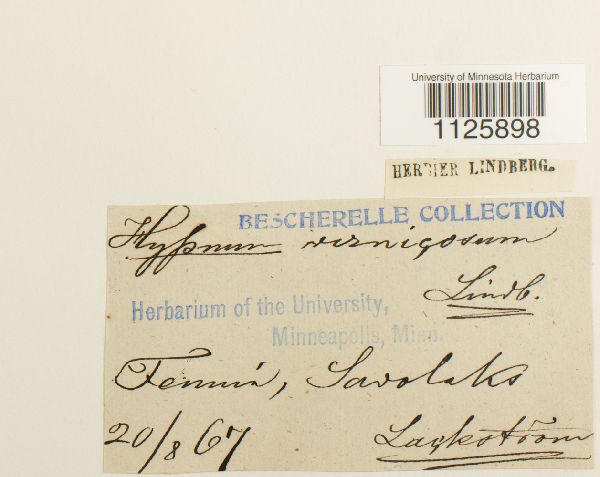 University of Minnesota Herbarium
1125898
HERBIER LINDBERG.
BESCHERELLE COLLECTION
Hypnum vernicosum
Lindb.
Herbarium of the University,
Minneapolis, Minn.
Fennia, Savolaks
20/8 67
Lackström